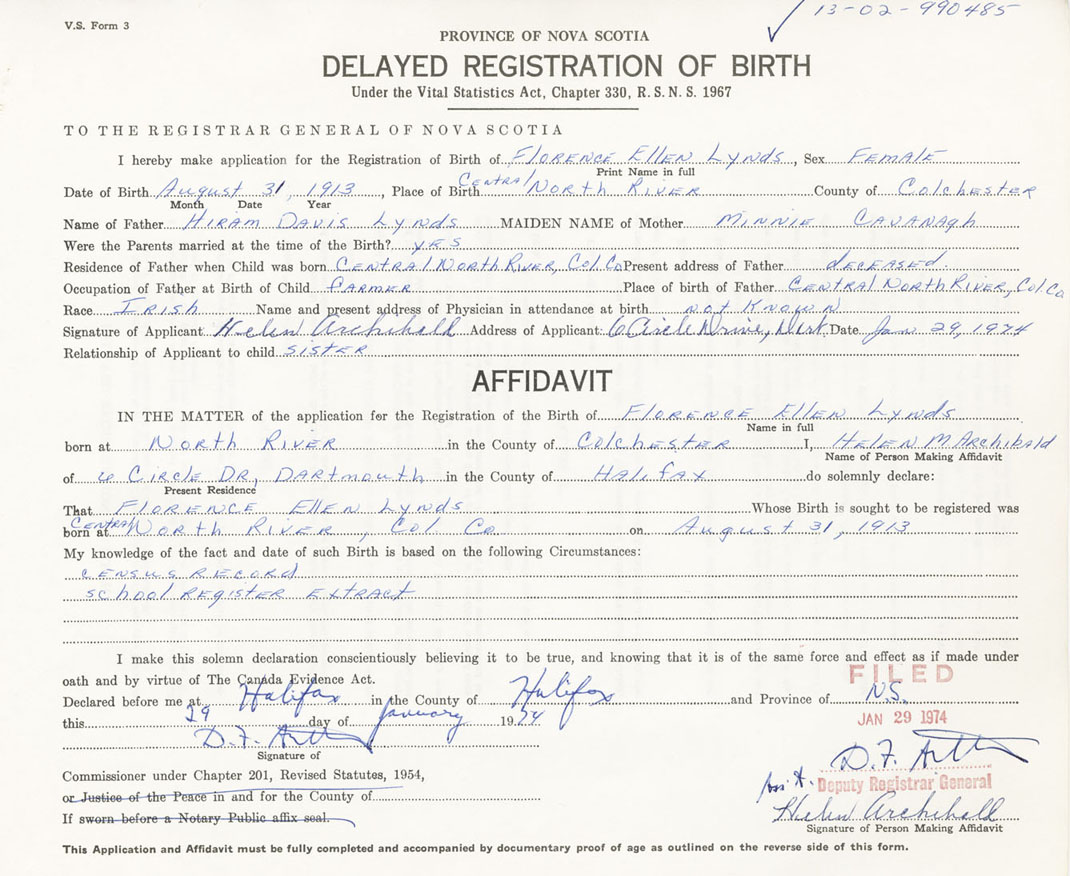 V.S. Form 3
13-02-990485
PROVINCE OF NOVA SCOTIA
DELAYED REGISTRATION OF BIRTH
Under the Vital Statistics Act, Chapter 330, R.S.N.S. 1967
TO THE REGISTRAR GENERAL OF NOVA SCOTIA
I hereby make application for the Registration of Birth of Florence Ellen Lynds, Sex Female
Print Name in full
Date of Birth August 31, 1913, Place of Birth Central North River County of Colchester
Month Date Year
Name of Father Hiram Davis Lynds MAIDEN NAME of Mother Minnie Cavanagh
Were the Parents married at the time of the Birth? yes
Residence of Father when Child was born Central North River, Col. Co Present address of Father deceased.
Occupation of Father at Birth of Child Farmer Place of birth of Father Central North River, Col Co
Race Irish Name and present address of Physician in attendance at birth not Known
Signature of Applicant Helen Archibald Address of Applicant: 6 Circle Drive, Dart. Date Jan 29, 1974
Relationship of Applicant to child sister
AFFIDAVIT
IN THE MATTER of the application for the Registration of the Birth of Florence Ellen Lynds
Name in full
born at North River in the County of Colchester I, Helen M Archibald
Name of Person Making Affidavit
of 6 Circle Dr, Dartmouth in the County of Halifax do solemnly declare:
Present Residence
That Florence Ellen Lynds Whose Birth is sought to be registered was
born at Central North River, Col Co on August 31, 1913
My knowledge of the fact and date of such Birth is based on the following Circumstances:
census record
school register extract
I make this solemn declaration conscientiously believing it to be true, and knowing that it is of the same force and effect as if made under
oath and by virtue of The Canada Evidence Act.
FILED
Declared before me at Halifax in the County of Halifax and Province of N.S.
this 29 day of January 1974
JAN 29 1974
D.F.
Signature of
D.F.
Commissioner under Chapter 201, Revised Statutes, 1954,
Deputy Registrar General
or Justice of the Peace in and for the County of
Helen Archibald
If sworn before a Notary Public affix seal.
Signature of Person Making Affidavit
This Application and Affidavit must be fully completed and accompanied by documentary proof of age as outlined on the reverse side of this form.